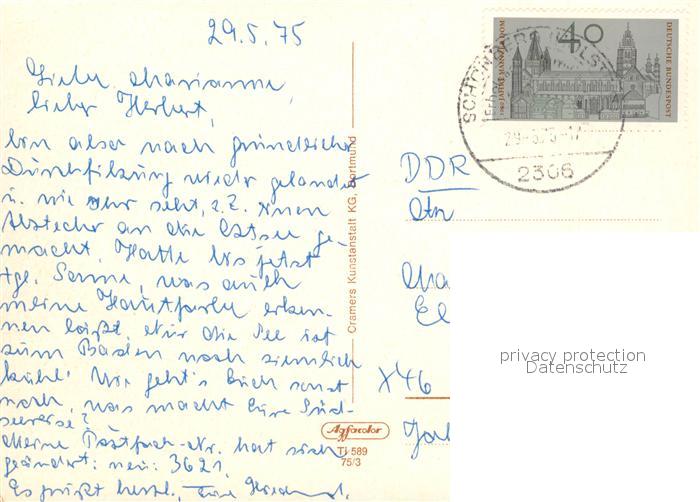 29.5.75
Liebe Marianne,
lieber Herbert,
bin also nach gründlicher
Durchfilzung wieder gelandet
u. wie Ihr seht, z.Z. einen
Abstecher an die Ostsee ge-
macht. Hatte bis jetzt
tgl. Sonne, was auch
meine Hautfarbe erken-
nen läßt. Nur die See ist
zum Baden noch ziemlich
kühl. Wie geht's Euch sonst
noch, was macht Eure Süd-
seereise?
Meine Postfach-Nr. hat sich
geändert: neu: 3621.
Es grüßt herzl.
Cramers Kunstanstalt KG, Dortmund
Agfacolor
TI 589
75/3
40
DEUTSCHE BUNDESPOST
1000 JAHRE MAINZER DOM
29.-5.75-17
2306
DDR
X46
privacy protection
Datenschutz